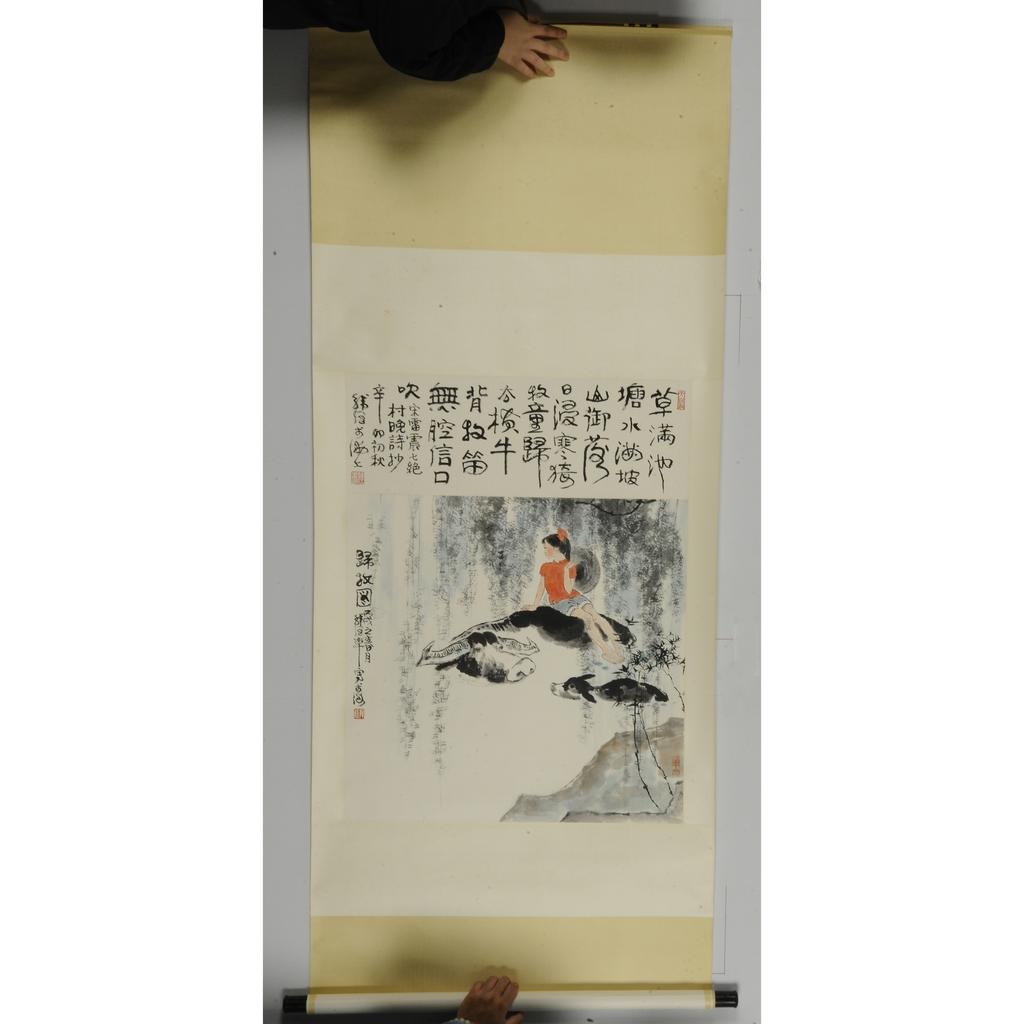 草滿池
塘水滿坡
山御落
日浸寒猗
牧童歸
去橫牛
背牧笛
無腔信口
吹宋雷震七絕
村晚詩抄
辛卯初秋
歸牧圖